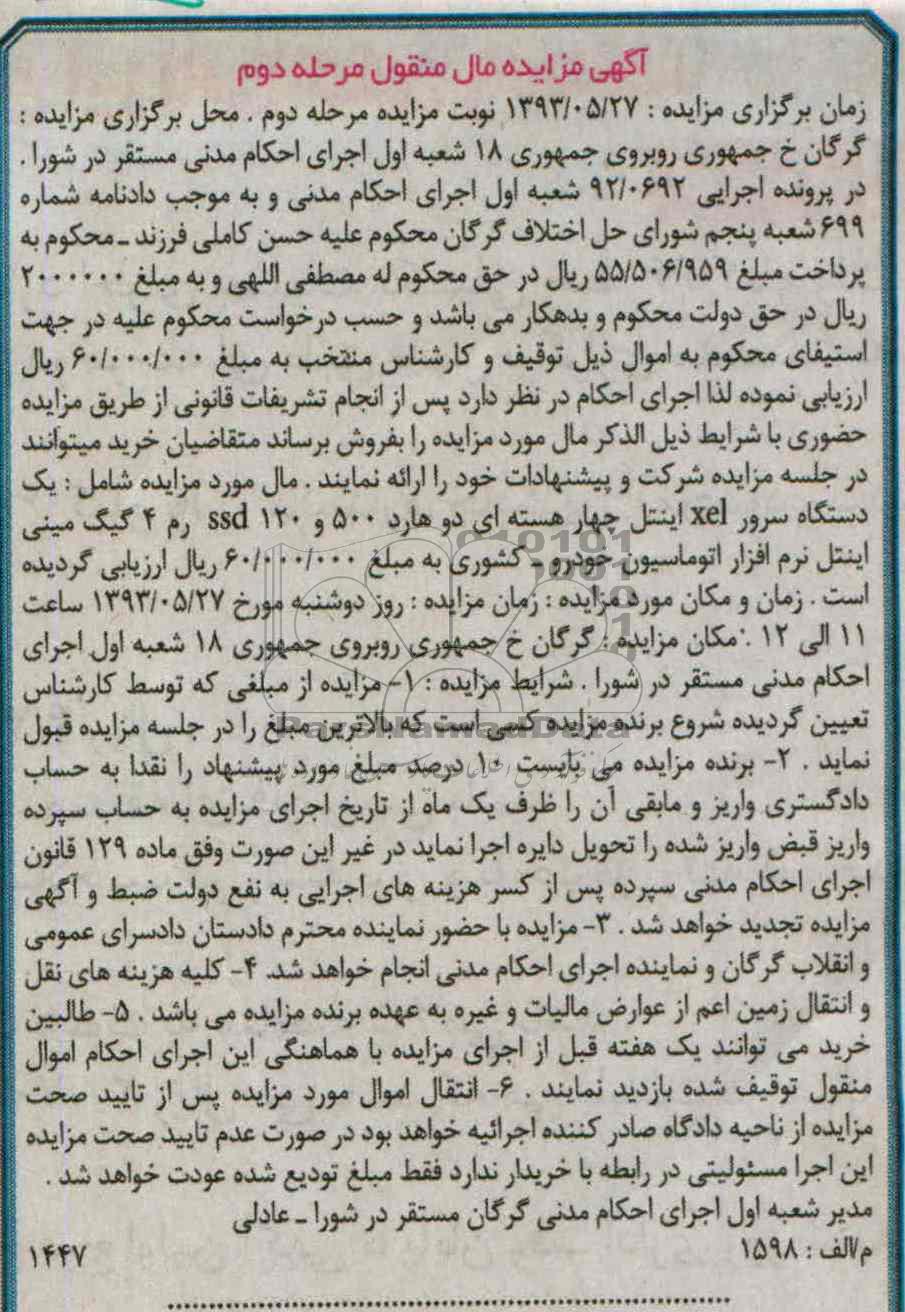 آگهی مزایده مال منقول مرحله دوم
زمان برگزاری مزایده : ۱۳۹۳/۰۵/۲۷ نوبت مزایده مرحله دوم . محل برگزاری مزایده :
گرگان خ جمهوری روبروی جمهوری ۱۸ شعبه اول اجرای احکام مدنی مستقر در شورا .
در پرونده اجرایی ۹۲/۰۶۹۲ شعبه اول اجرای احکام مدنی و به موجب دادنامه شماره
۶۹۹ شعبه پنجم شورای حل اختلاف گرگان محکوم علیه حسن کاملی فرزند ـ محکوم به
پرداخت مبلغ ۵۵/۵۰۶/۹۵۹ ریال در حق محکوم له مصطفی اللهی و به مبلغ ۲۰۰۰۰۰۰
ریال در حق دولت محکوم و بدهکار می باشد و حسب درخواست محکوم علیه در جهت
استیفای محکوم به اموال ذیل توقیف و کارشناس منتخب به مبلغ ۶۰/۰۰۰/۰۰۰ ریال
ارزیابی نموده لذا اجرای احکام در نظر دارد پس از انجام تشریفات قانونی از طریق مزایده
حضوری با شرایط ذیل الذکر مال مورد مزایده را بفروش برساند متقاضیان خرید میتوانند
در جلسه مزایده شرکت و پیشنهادات خود را ارائه نمایند . مال مورد مزایده شامل : یک
دستگاه سرور xel اینتل چهار هسته ای دو هارد ۵۰۰ و ۱۲۰ ssd رم ۴ گیگ مینی
اینتل نرم افزار اتوماسیون خودرو ـ کشوری به مبلغ ۶۰/۰۰۰/۰۰۰ ریال ارزیابی گردیده
است . زمان و مکان مورد مزایده : زمان مزایده : روز دوشنبه مورخ ۱۳۹۳/۰۵/۲۷ ساعت
۱۱ الی ۱۲ . مکان مزایده : گرگان خ جمهوری روبروی جمهوری ۱۸ شعبه اول اجرای
احکام مدنی مستقر در شورا . شرایط مزایده : ۱- مزایده از مبلغی که توسط کارشناس
تعیین گردیده شروع برنده مزایده کسی است که بالاترین مبلغ را در جلسه مزایده قبول
نماید . ۲- برنده مزایده می بایست ۱۰ درصد مبلغ مورد پیشنهاد را نقدا به حساب
دادگستری واریز و مابقی آن را ظرف یک ماه از تاریخ اجرای مزایده به حساب سپرده
واریز قبض واریز شده را تحویل دایره اجرا نماید در غیر این صورت وفق ماده ۱۲۹ قانون
اجرای احکام مدنی سپرده پس از کسر هزینه های اجرایی به نفع دولت ضبط و آگهی
مزایده تجدید خواهد شد . ۳- مزایده با حضور نماینده محترم دادستان دادسرای عمومی
و انقلاب گرگان و نماینده اجرای احکام مدنی انجام خواهد شد. ۴- کلیه هزینه های نقل
و انتقال زمین اعم از عوارض مالیات و غیره به عهده برنده مزایده می باشد . ۵- طالبین
خرید می توانند یک هفته قبل از اجرای مزایده با هماهنگی این اجرای احکام اموال
منقول توقیف شده بازدید نمایند . ۶- انتقال اموال مورد مزایده پس از تایید صحت
مزایده از ناحیه دادگاه صادر کننده اجرائیه خواهد بود در صورت عدم تایید صحت مزایده
این اجرا مسئولیتی در رابطه با خریدار ندارد فقط مبلغ تودیع شده عودت خواهد شد .
مدیر شعبه اول اجرای احکام مدنی گرگان مستقر در شورا ـ عادلی
م/الف : ۱۵۹۸
۱۴۴۷